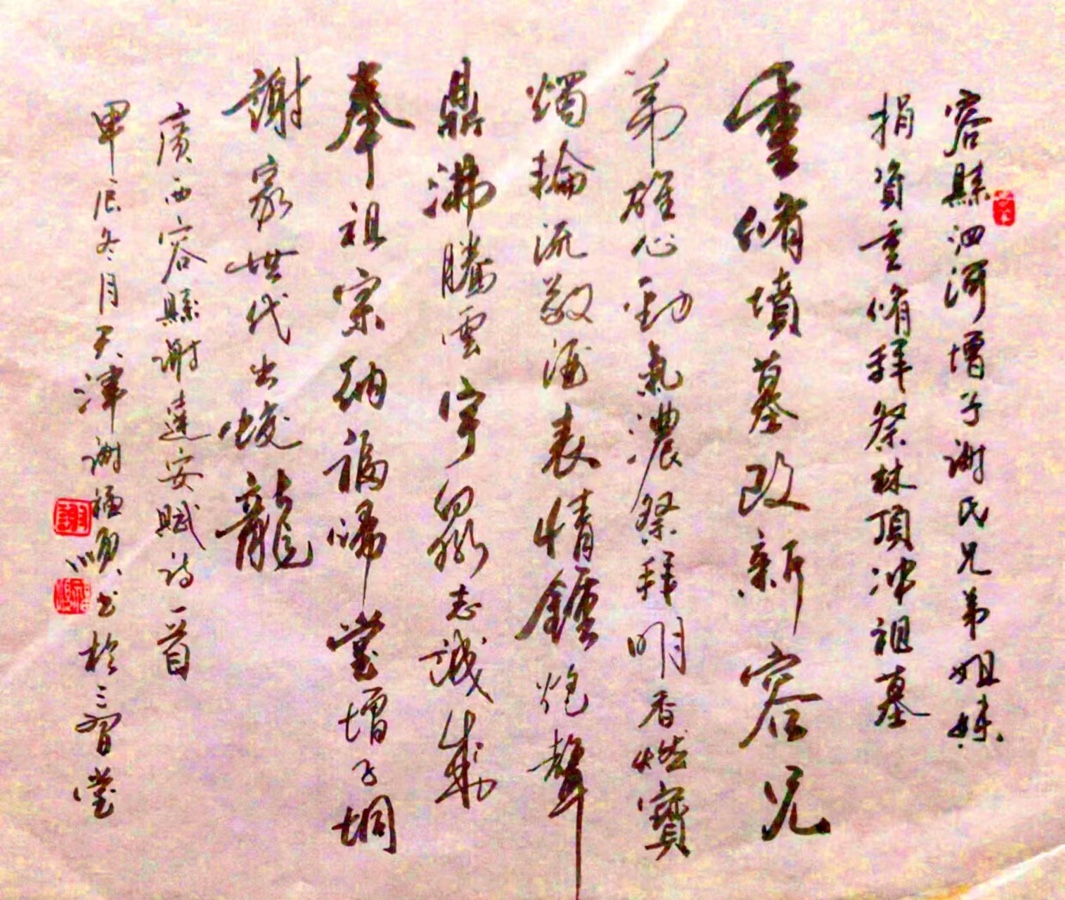 容縣泗河增子謝氏兄弟姐妹
捐資重脩拜祭林頂冲祖墓
重脩墳墓改新容兄
弟雄心勁氣濃祭拜明香燃寶
燭輪流敬酒表情鍾炮聲
鼎沸騰雲宇眾志誠成
奉祖宗納福歸堂增子垌
謝家世代出蛟龍
廣西容縣謝達安賦詩一首
甲辰冬月天津謝福順書於三習堂